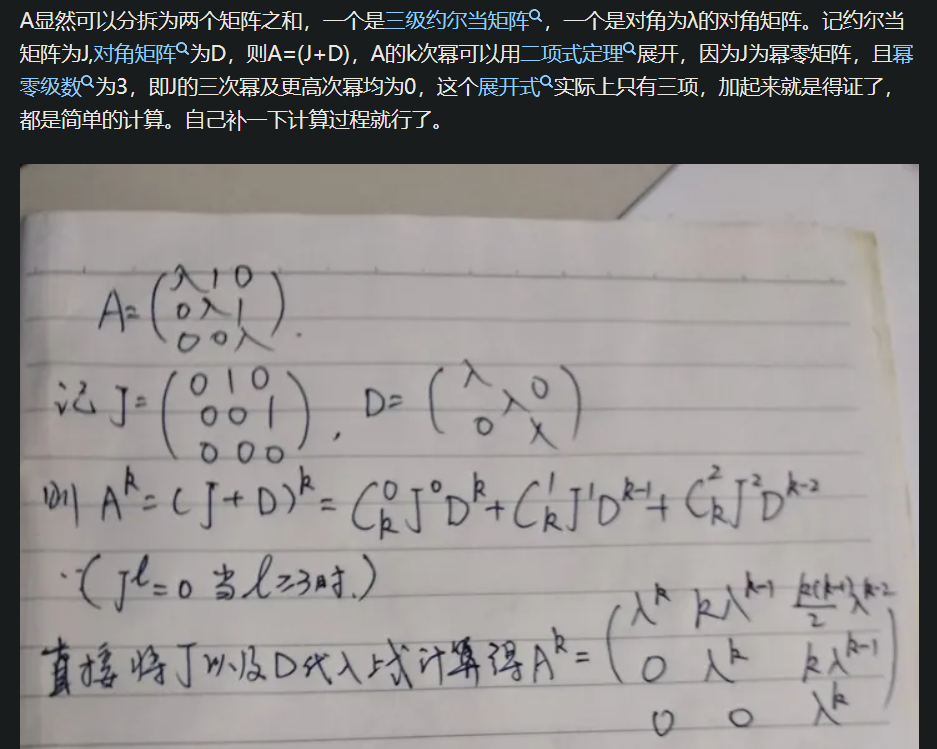 A显然可以分拆为两个矩阵之和，一个是三级约尔当矩阵，一个是对角为λ的对角矩阵。记约尔当
矩阵为J,对角矩阵为D，则A=(J+D)，A的k次幂可以用二项式定理展开，因为J为幂零矩阵，且幂
零级数为3，即J的三次幂及更高次幂均为0，这个展开式实际上只有三项，加起来就是得证了，
都是简单的计算。自己补一下计算过程就行了。
A= ( λ 1 0
0 λ 1
0 0 λ ) .
记 J= ( 0 1 0
0 0 1
0 0 0 ) , D= ( λ 0
λ
0 λ )
则 A^k = (J+D)^k = C_k^0 J^0 D^k + C_k^1 J^1 D^{k-1} + C_k^2 J^2 D^{k-2}
∵ (J^l = 0 当 l≥3时.)
直接将J以及D代入上式计算得 A^k = ( λ^k kλ^{k-1} \frac{k(k-1)}{2} λ^{k-2}
0 λ^k kλ^{k-1}
0 0 λ^k )